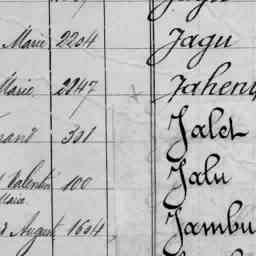 Marie 2204 Jagu
Marie 2247 Jaheny
301 Jalet
Valentin 100 Jalu
Maria
August 1604 Jambu